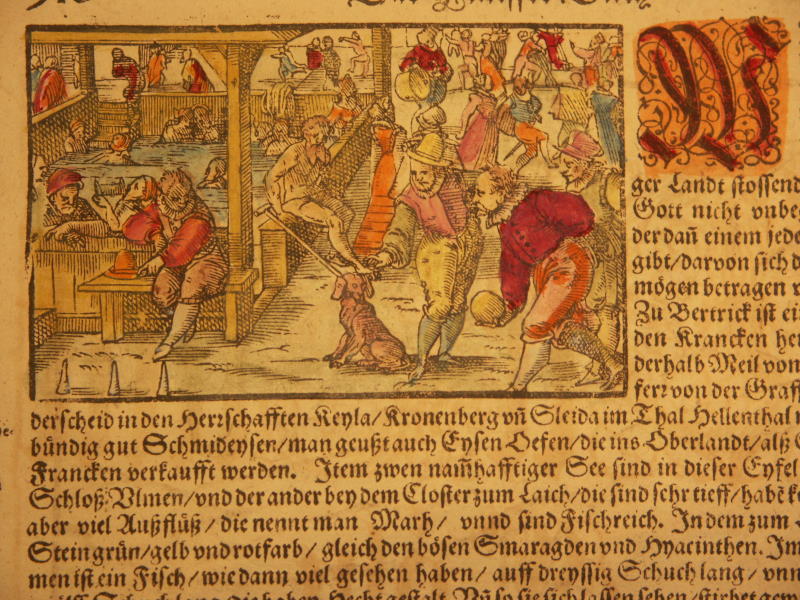 Das Fünffte Buch
W
ger Landt stossend
Gott nicht vnbe
der dañ einem jede
gibt/darvon sich d
mögen betragen
Zu Bertrick ist ei
den Krancken her
derhalb Meil von
ferr von der Graff
derscheid in den Herrschafften Keyla/Kronenberg vñ Sleida im Thal Hellenthal
bündig gut Schmideysen/man geußt auch Eysen Oefen/die ins Oberlandt/alß
Francken verkaufft werden. Item zwen nam̃hafftiger See sind in dieser Eyfel
Schloß Vlmen/vnd der ander bey dem Closter zum Laich/die sind sehr tieff/habẽ k
aber viel Außflüß/die nennt man Marh/ vnnd sind Fischreich. In dem zum
Stein grün/gelb vnd rotfarb/gleich den bösen Smaragden vnd Hyacinthen. Im
men ist ein Fisch/wie dann viel gesehen haben/auff dreyssig Schuch lang/vnn
Schuch lang/die haben Hecht gestalt. Nũ so sie sich lassen sehen/stirbet gew